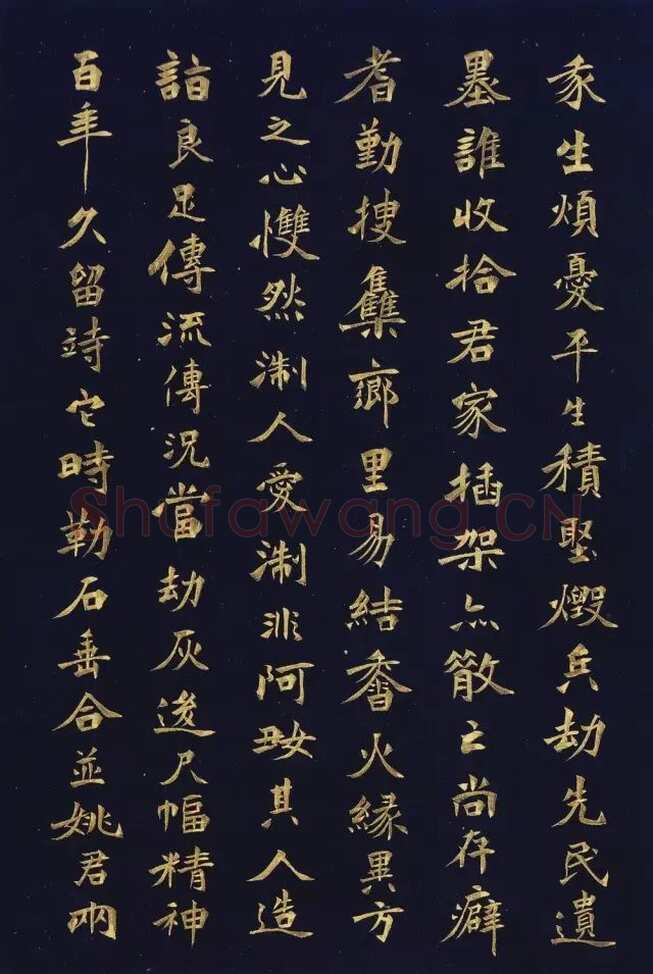 豖生煩憂平生積堅燬兵劫先民遺
墨誰收拾君家插架亦散亡尚存癖
耆勤搜集鄉里易結香火緣異方
見之心戄然淛人愛淛非阿好其人造
詣良足傳流傳況當劫灰後尺幅精神
百年久留詩它時勒石垂合並姚君兩
Shafawang.CN